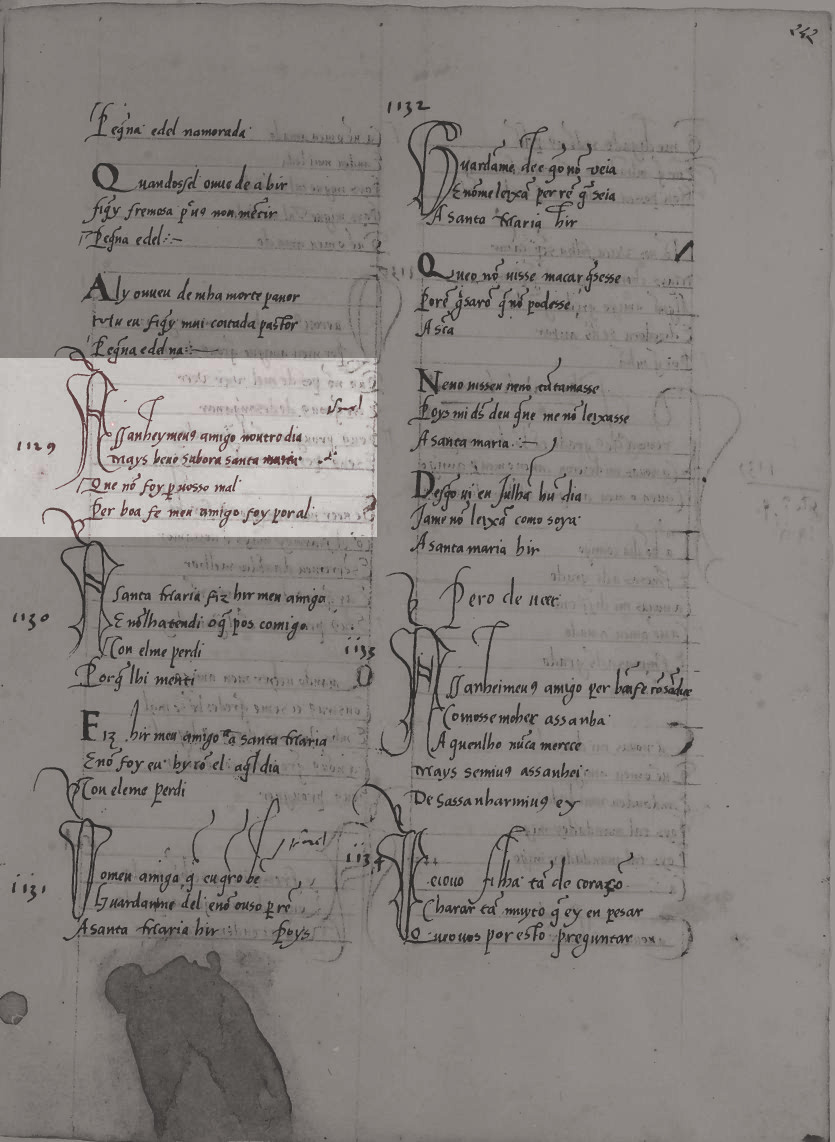 242
Pegña edel namorada
Quandossel ouue de a hir
fiq̃y fremosa p̃ uꝯ non mẽtir
Pegña edel :~
Aly ouueu de mha morte pauor
hu eu fiq̃y mui coitada pastor
Pegña edel na :~
1129
Assanheymeuꝯ amigo noutro dia
Mays benõ sabora santa maria
Que nõ foy p̱ uosso mal
Per boa fe meu amigo foy por al
1130
A Santa Maria fiz hir meu amigo
E nõ lhatendi o q̃ pos comigo
Con elme perdi
Porq̃ lhi menti
Fiz hir meu amigo a santa Maria
E nõ foy eu hy cõ el aq̃l dia
Con eleme perdi
1131
Pomeu amigo q̃ eu q̃ro bẽ
Guardanme del enõ ouso p̱ rẽ
A santa Maria hir : Poys
1132
Guardãme de e q̃o nõ ueia
E nõmeleixã per rẽ q̃ seia
A Santa Maria hir
Que o nõ uisse macar q̃sesse
Porẽ g̃sarõ q̃ nõ podesse
A sc̃a
Neno uisseu neno catamasse
Poys mi ds̃ deu que me nõ leixasse
A santa maria :~
Desq̃o ui en Julhã hũ dia
Ja me nõ leixã como soya
A santa maria hir
Pero de ueer
1133
Assanheimeuꝯ amigo per bõa fe cõ sãdiçe
Como sse molher assanha
A quenlho nũca merece
Mays semiuꝯ assanhei
Desassanharmiuꝯ ey
1134
Veiouo filha tã de coraçõ
Chorar tã muyto q̃ ey en pesar
E ueouos por esto preguntar